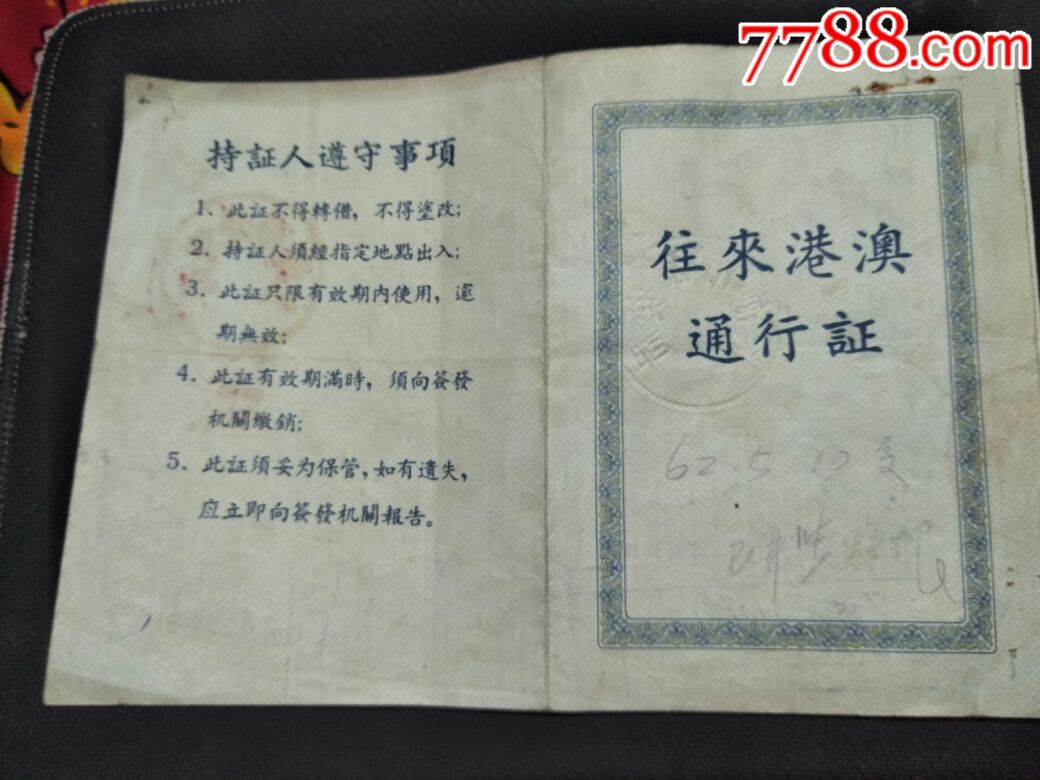 7788.com
持証人遵守事項
1、此証不得轉借，不得塗改；
2、持証人須經指定地點出入；
3、此証只限有效期內使用，逾
期無效；
4、此証有效期滿時，須向簽發
机關繳銷；
5、此証須妥为保管，如有遺失，
应立即向簽發机關報告。
往來港澳
通行証
62 5 12